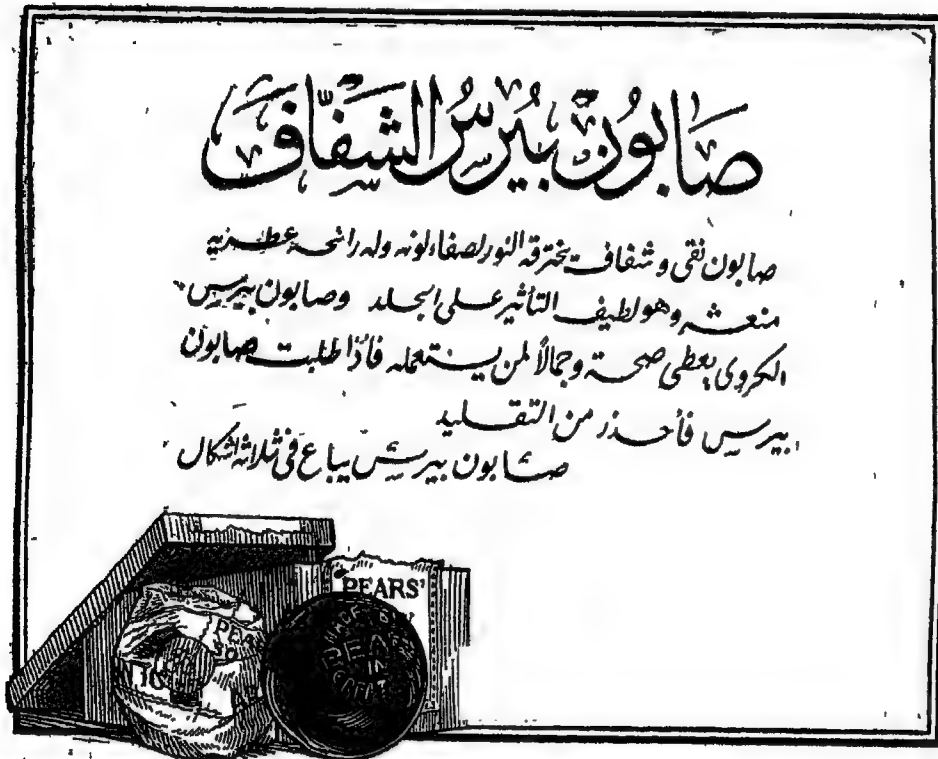 صَابُونُ بِيُرسُ الشَفَّافَ
صابون نقى وشفاف يخترقه النور لصفاء لونه وله رائحه عطريه
منعشه وهو لطيف التأثير على الجلد وصابون بيرس
الكروى يعطى صحة وجمالًا لمن يستعمله فأذا طلبت صابون
بيرس فأحذر من التقليد
صابون بيرس يباع فى ثلاثه اشكال
PEARS'